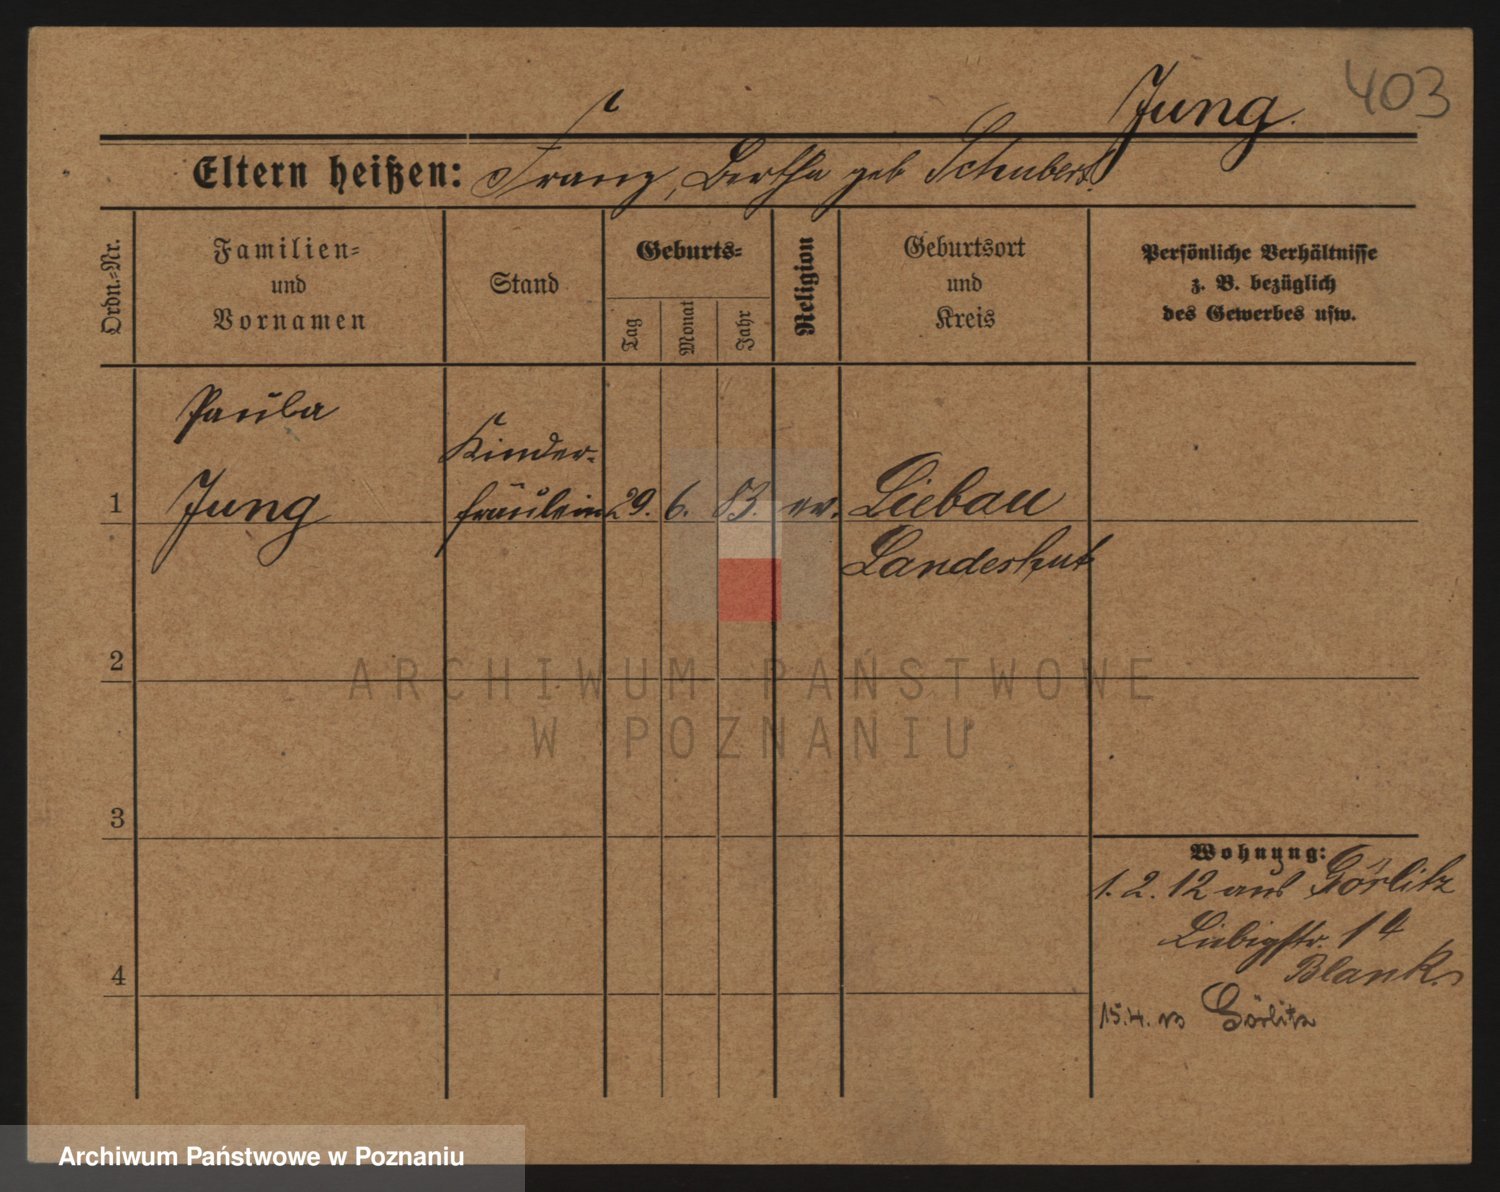 403
Jung.
Eltern heißen: Franz, Bertha geb Schubert.
Ordn.=Nr.
Familien=
und
Vornamen
Stand
Geburts=
Tag
Monat
Jahr
Religion
Geburtsort
und
Kreis
Persönliche Verhältnisse
z. B. bezüglich
des Gewerbes usw.
Paula
Kinder=
1 Jung fräulein 29. 6. 83. ev. Liebau
Landeshut
2
ARCHIWUM PAŃSTWOWE
W POZNANIU
3
Wohnung:
1. 2. 12 aus Görlitz
Liebigstr. 14
Blank.
4
15.4. 13 Görlitz
Archiwum Państwowe w Poznaniu